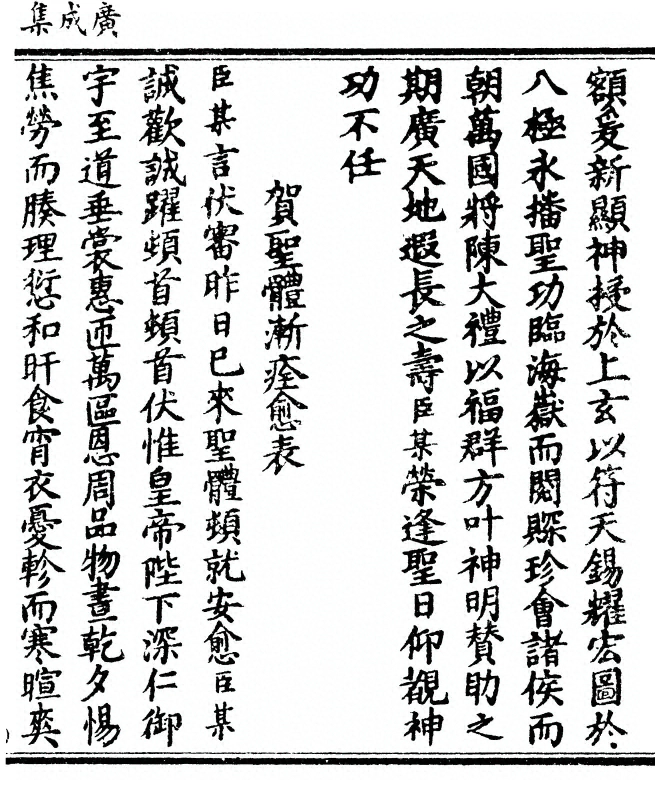 廣成集
額爰新顯神授於上玄以符天錫耀宏圖於
八極永播聖功臨海嶽而閱賝珍會諸侯而
朝萬國將陳大禮以福群方叶神明贊助之
期廣天地遐長之壽臣某榮逢聖日仰覩神
功不任
賀聖體漸痊愈表
臣某言伏審昨日已來聖體頓就安愈臣某
誠歡誠躍頓首頓首伏惟皇帝陛下深仁御
宇至道垂裳惠匝萬區恩周品物晝乾夕惕
焦勞而腠理愆和旰食宵衣憂軫而寒暄爽